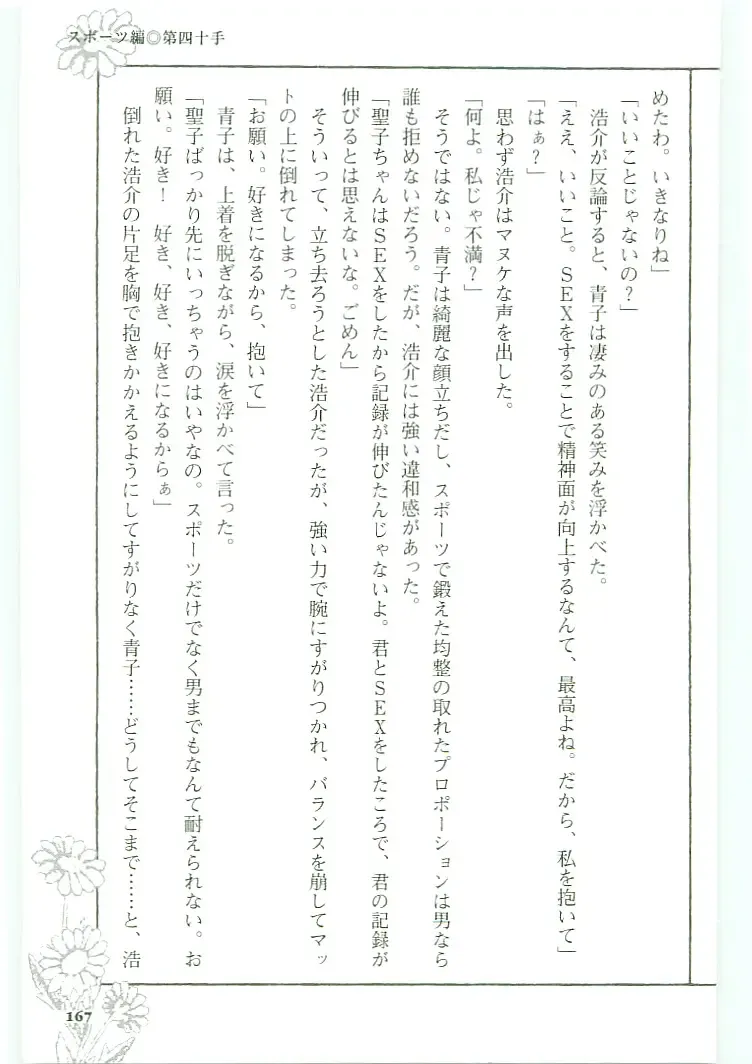 スポーツ編◎第四十手
めたわ。いきなりね」
「いいことじゃないの？」
浩介が反論すると、青子は凄みのある笑みを浮かべた。
「ええ、いいこと。ＳＥＸをすることで精神面が向上するなんて、最高よね。だから、私を抱いて」
「はぁ？」
思わず浩介はマヌケな声を出した。
「何よ。私じゃ不満？」
そうではない。青子は綺麗な顔立ちだし、スポーツで鍛えた均整の取れたプロポーションは男なら
誰も拒めないだろう。だが、浩介には強い違和感があった。
「聖子ちゃんはＳＥＸをしたから記録が伸びたんじゃないよ。君とＳＥＸをしたころで、君の記録が
伸びるとは思えないな。ごめん」
そういって、立ち去ろうとした浩介だったが、強い力で腕にすがりつかれ、バランスを崩してマッ
トの上に倒れてしまった。
「お願い。好きになるから、抱いて」
青子は、上着を脱ぎながら、涙を浮かべて言った。
「聖子ばっかり先にいっちゃうのはいやなの。スポーツだけでなく男までもなんて耐えられない。お
願い。好き！　好き、好き、好きになるからぁ」
倒れた浩介の片足を胸で抱きかかえるようにしてすがりなく青子……どうしてそこまで……と、浩
167